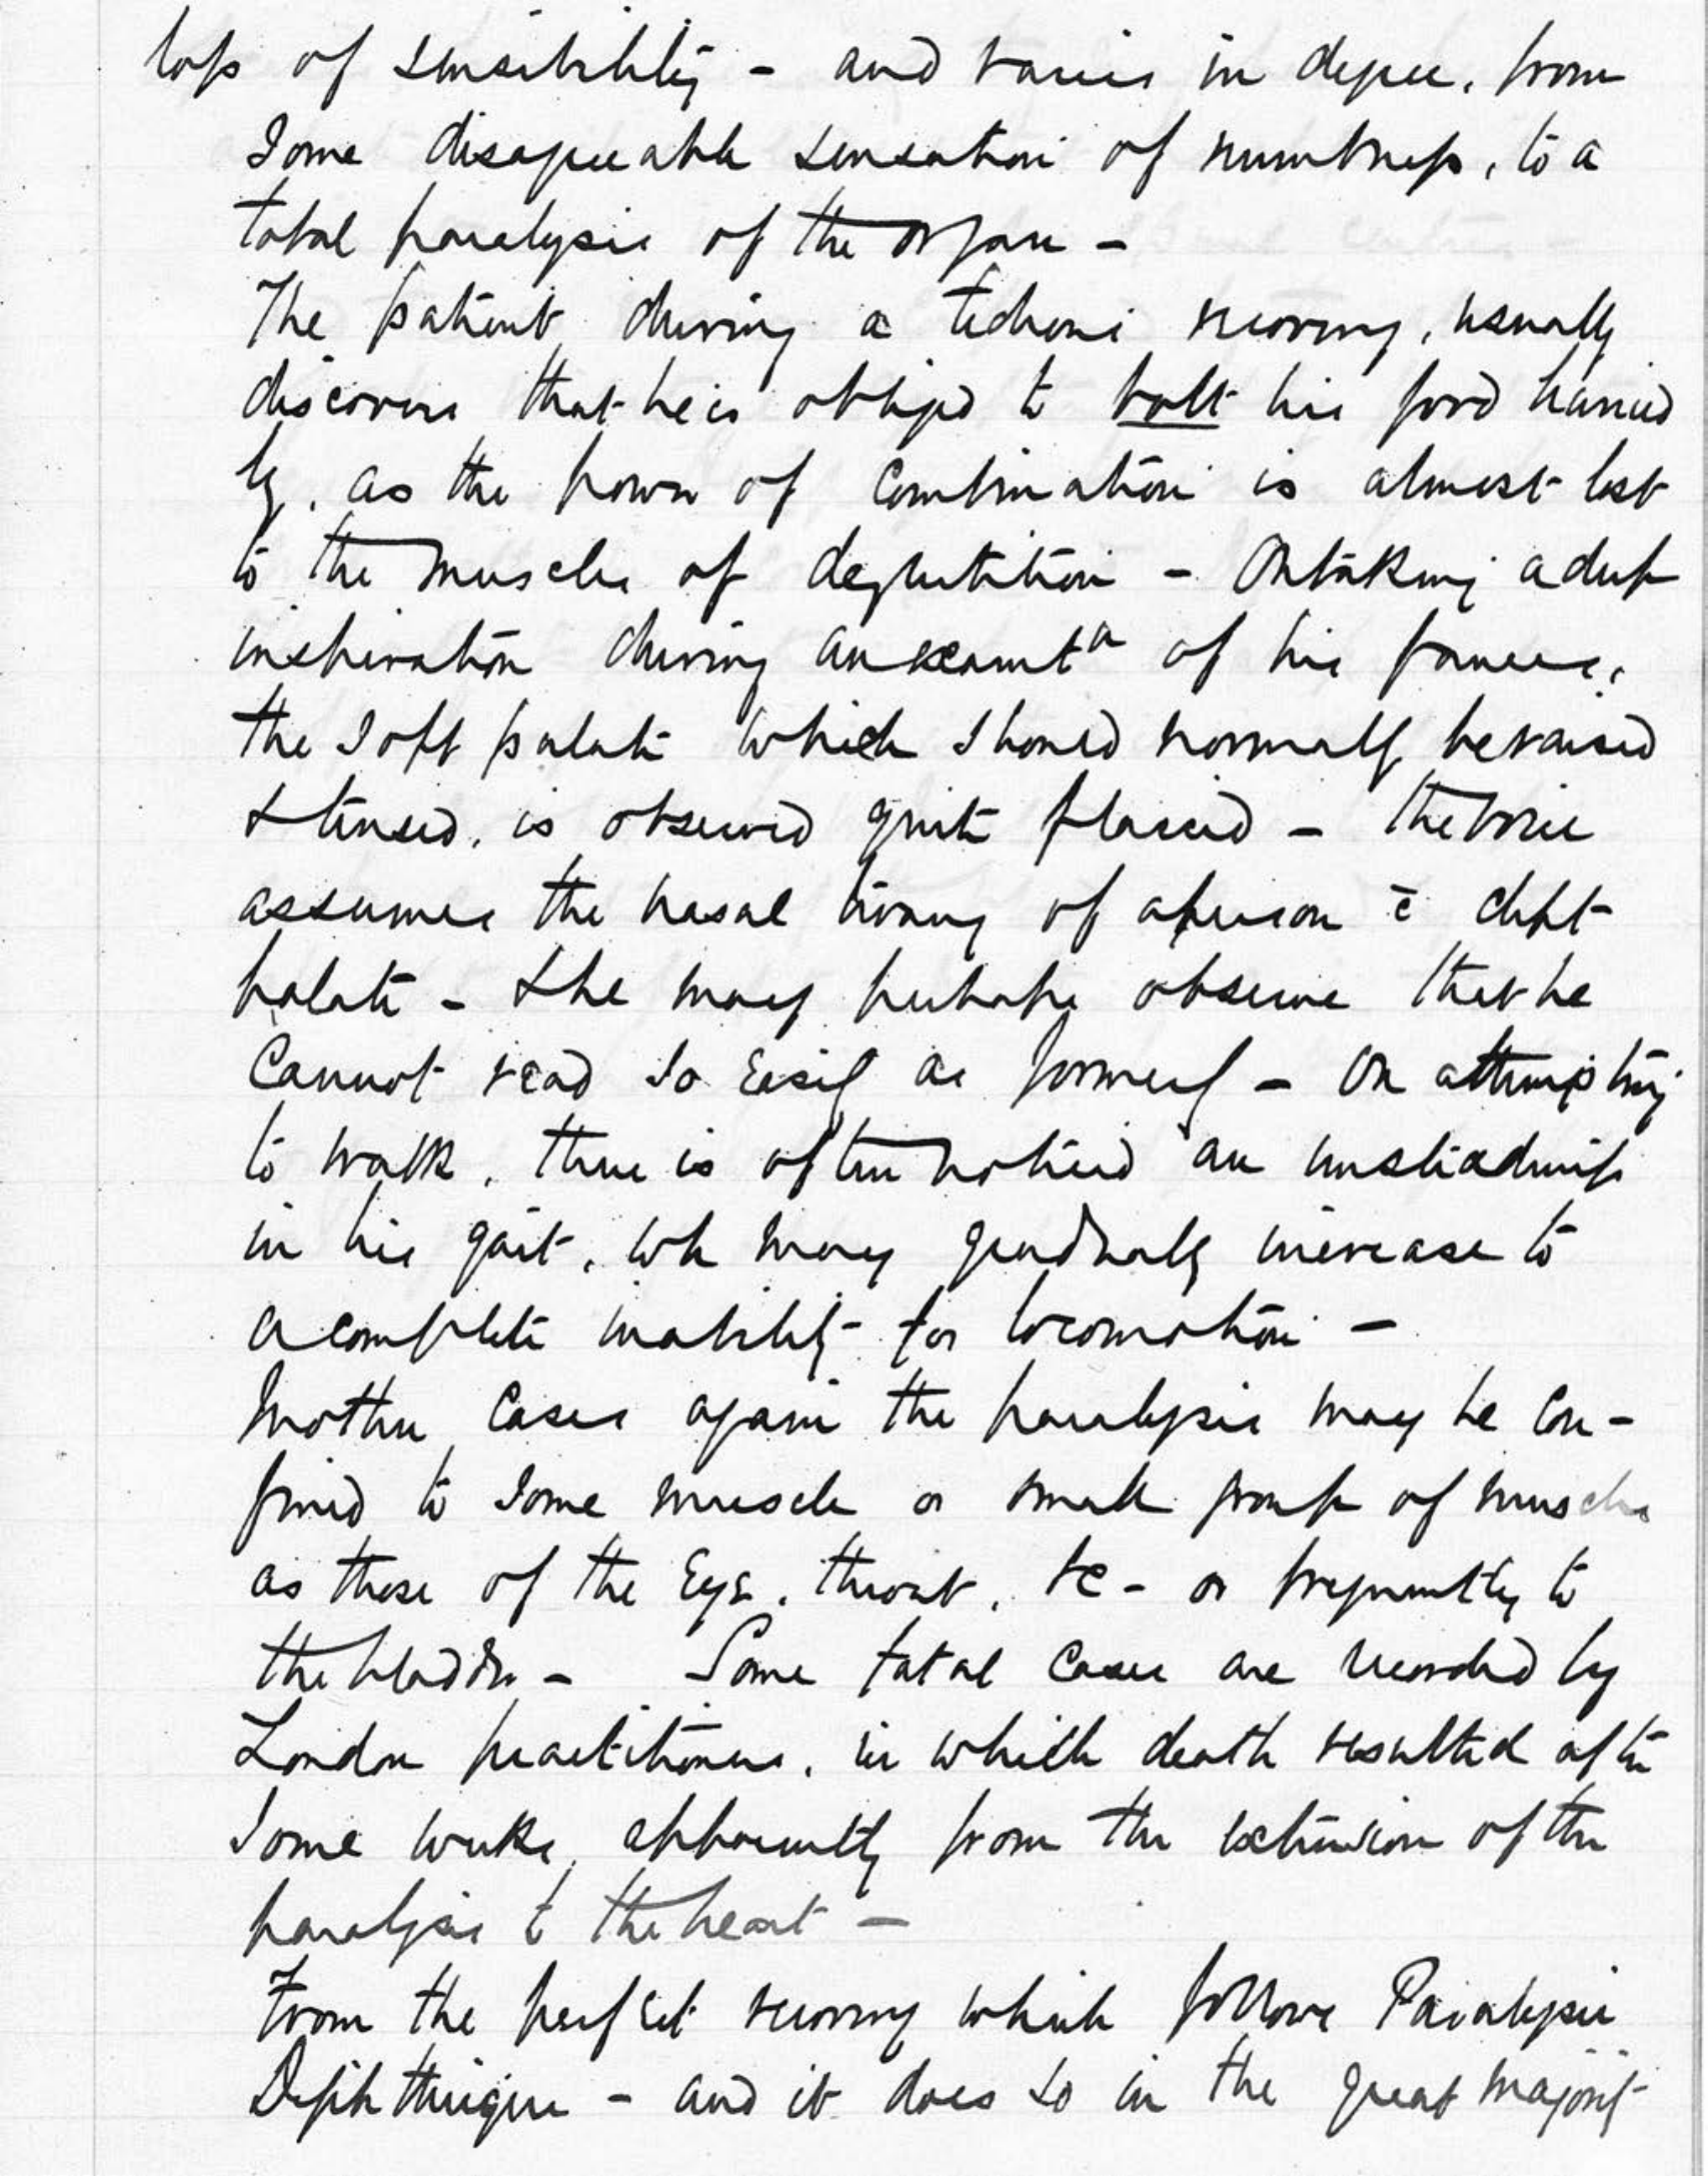 loss of sensibility - and varies in degree, from
some disagreeable sensation of numbness, to a
total paralysis of the organ -
The patient during a tedious recovery, usually
discovers that he is obliged to bolt his food hurried
ly, as the power of combination is almost lost
to the muscles of deglutition - On taking a deep
inspiration during an examtn of his fauces,
the soft palate which should normally be raised
& tensed, is observed quite flaccid - The voice
assumes the nasal twang of a person c̄ cleft
palate - & he may perhaps observe that he
cannot read so easily as formerly - On attempting
to walk, there is often noticed an unsteadiness
in his gait, wh may gradually increase to
a complete inability for locomotion -
In other cases again the paralysis may be con-
fined to some muscle or small group of muscles
as those of the eye, throat, &c - or frequently to
the bladder - Some fatal cases are recorded by
London practitioners, in which death resulted after
some weeks, apparently from the extension of the
paralysis to the heart -
From the perfect recovery which follows Paralysie
Diphtherique - and it does so in the great majority